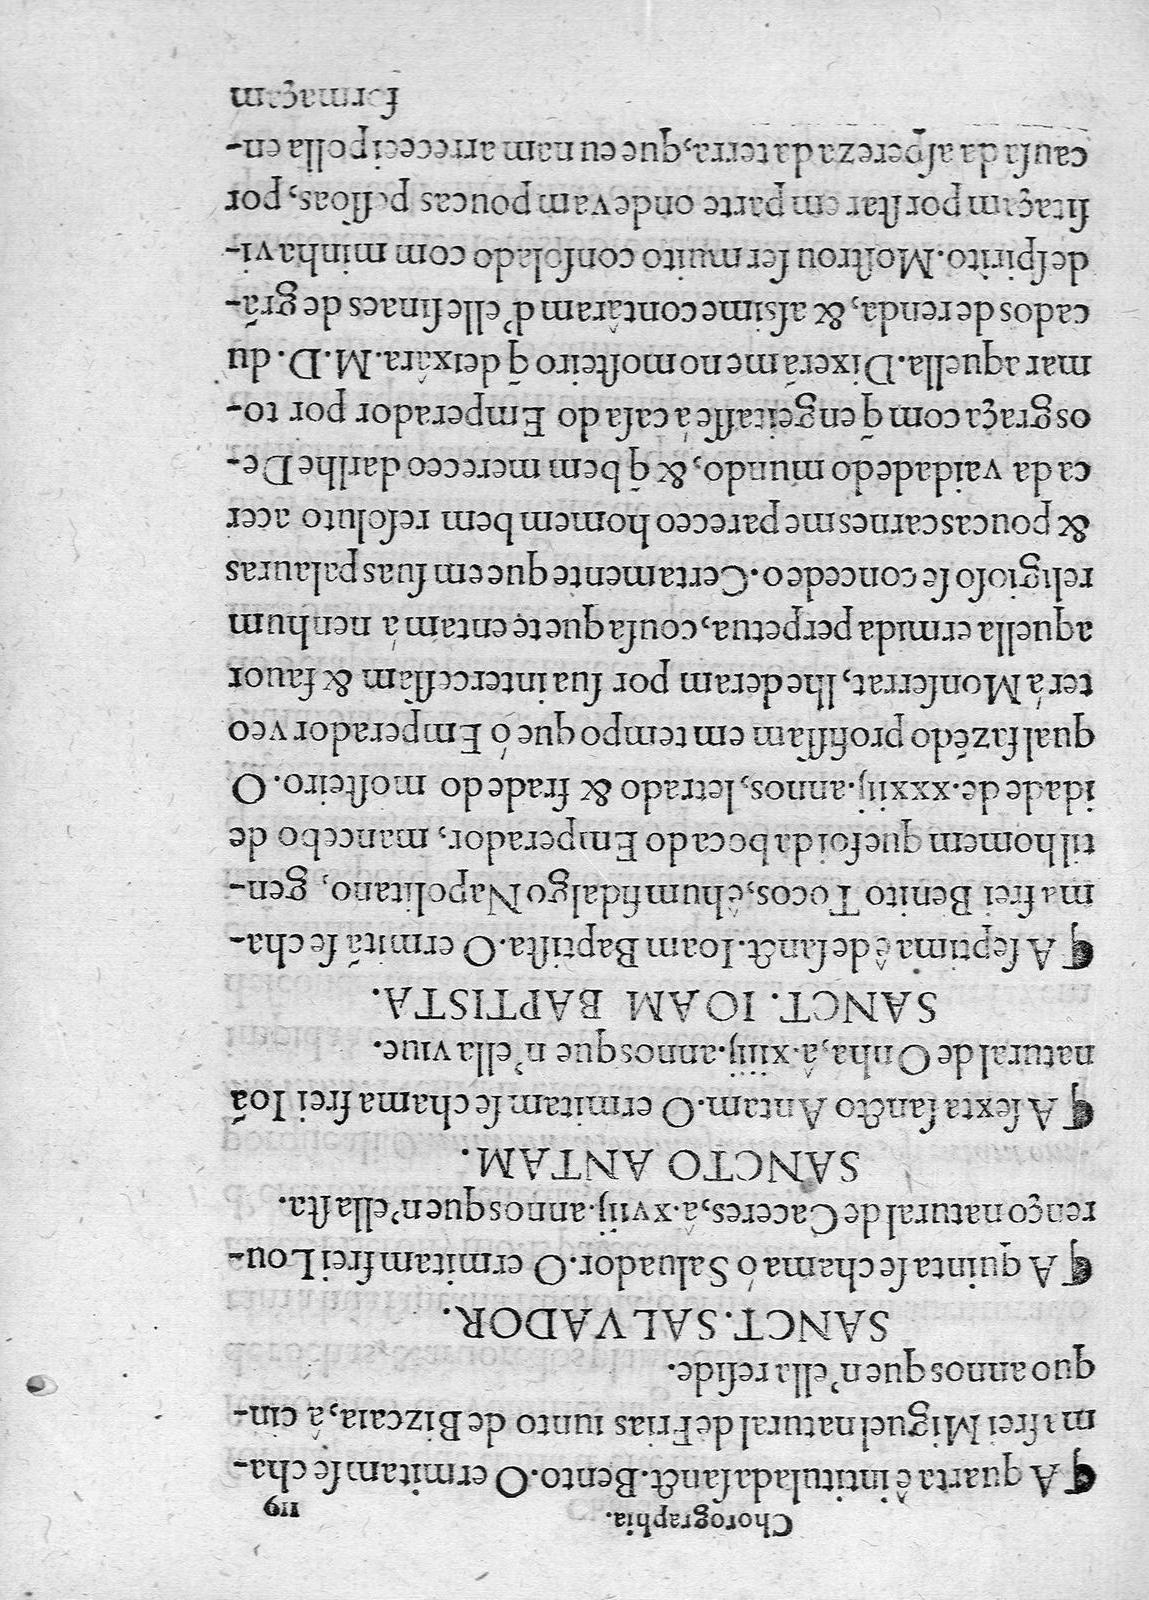 Chorographia. 119
¶ A quarta ê intitulada sanct. Bento. O ermitam se cha-
ma frei Miguel natural de Frias iunto de Bizcaia, â cin-
quo annos que n'ella reside.
SANCT. SALVADOR.
¶ A quinta se chama ó Saluador. O ermitam frei Lou-
renço natural de Caceres, â .xviij. annos que n'ella sta.
SANCTO ANTAM.
¶ A sexta sancto Antam. O ermitam se chama frei Ioã
natural de Onha, â .xiiij. annos que n'ella viue.
SANCT. IOAM BAPTISTA.
¶ A septima ê de sanct. Ioam Baptista. O ermitã se cha-
ma frei Benito Tocos, ê hum fidalgo Napolitano, gen-
til homem que foi da boca do Emperador, mancebo de
idade de .xxxiij. annos, letrado & frade do mosteiro. O
qual fazẽdo profissam em tempo que ó Emperador veo
ter á Monserrat, lhe deram por sua intercessam & fauor
aquella ermida perpetua, cousa que te entam á nenhum
religioso se concedeo. Certamente que em suas palauras
& poucas carnes me pareceo homem bem resoluto acer
ca da vaidade do mundo, & q̃ bem mereceo darlhe De-
os graça com q̃ engeitasse á casa do Emperador por to-
mar aquella. Dixerá me no mosteiro q̃ deixâra. M. D. du
cados de renda, & assi me contâram d'elle sinaes de grã-
de spirito. Mostrou ser muito consolado com minha vi-
sitaçam por star em parte onde vam poucas pessoas, por
causa da aspereza da terra, que eu nam arreceei polla en-
formaçam